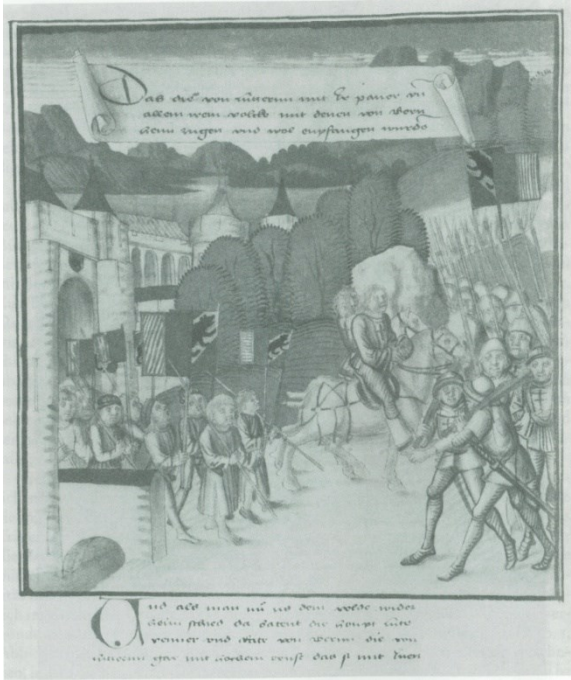 Das die von lutzernn mit Ir paner vn
allem irem volck mit denen von Bern
heim zugen vnd wol enpfangen wurde
Und als man nu us dem velde wider
heim schied da batent die houpt lüte
venner vnd Räte von Bernn die von
lutzernn gar mit gantzem ernst das si mit Inen